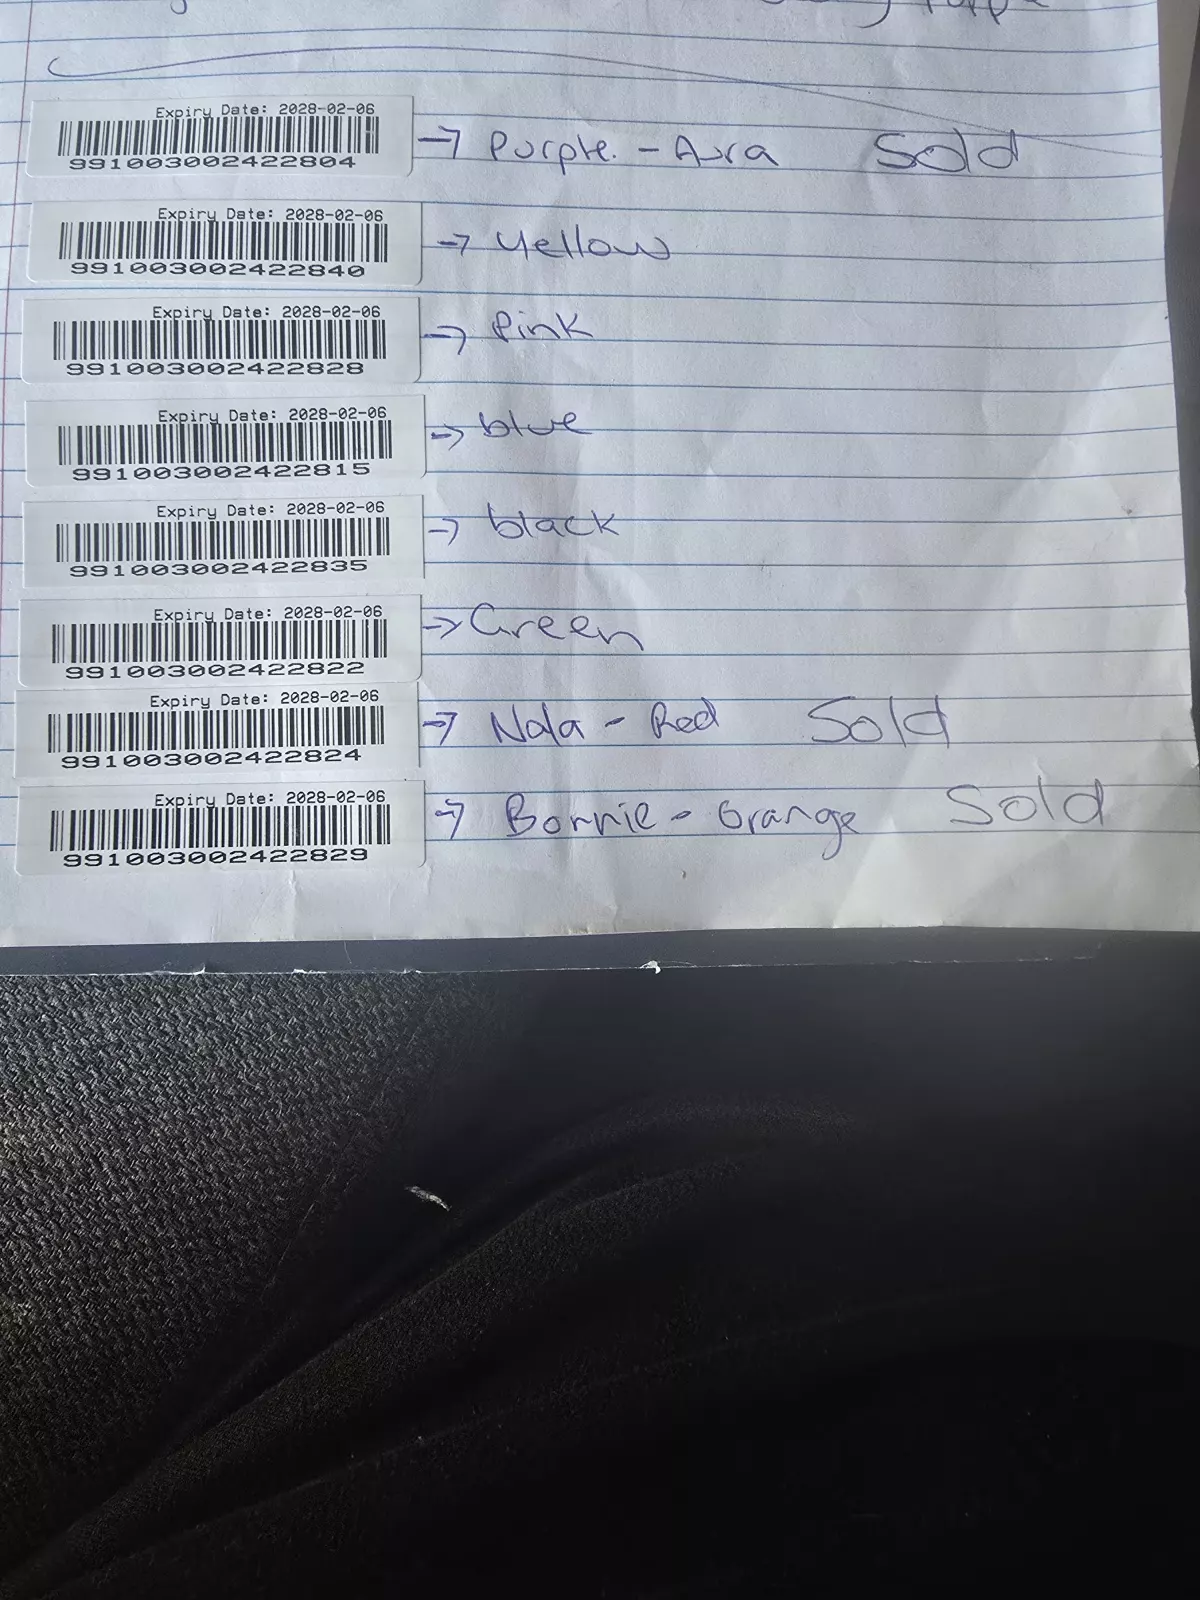 Expiry Date: 2028-02-06
991003002422804 → Purple. - Aura Sold
Expiry Date: 2028-02-06
991003002422840 → Yellow
Expiry Date: 2028-02-06
991003002422828 → Pink
Expiry Date: 2028-02-06
991003002422815 → blue
Expiry Date: 2028-02-06
991003002422835 → black
Expiry Date: 2028-02-06
991003002422822 → Green
Expiry Date: 2028-02-06
991003002422824 → Nala - Red Sold
Expiry Date: 2028-02-06
991003002422829 → Bonnie - Orange Sold